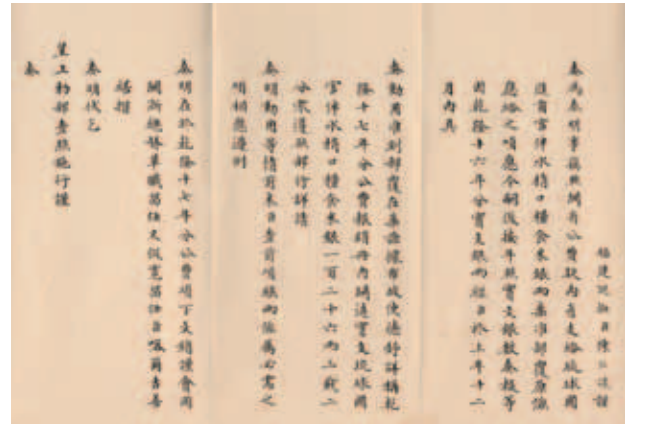 福建巡撫臣陳弘謀謹
奏為奏明事竊照閩省公費款內有支給琉球國
進貢官伴水梢口糧食米銀兩案准部覆原係
應給之項應令嗣後按年照實支銀數奏報等
因乾隆十六年分實支銀兩經臣於上年十二
月內具
奏動用准到部覆在案茲據布政使德舒詳稱乾
隆十七年分公費報銷冊內開造實支琉球國
官伴水梢口糧食米銀一百二十六兩二錢二
分零遵照部行詳請
奏明動用等情前來臣查前項銀兩係屬必需之
項相應遵例
奏明在於乾隆十七年分公費項下支銷謹會同
閩浙總督革職留任又從寬留任臣喀爾吉善
恭摺
奏明伏乞
皇上勅部查照施行謹
奏